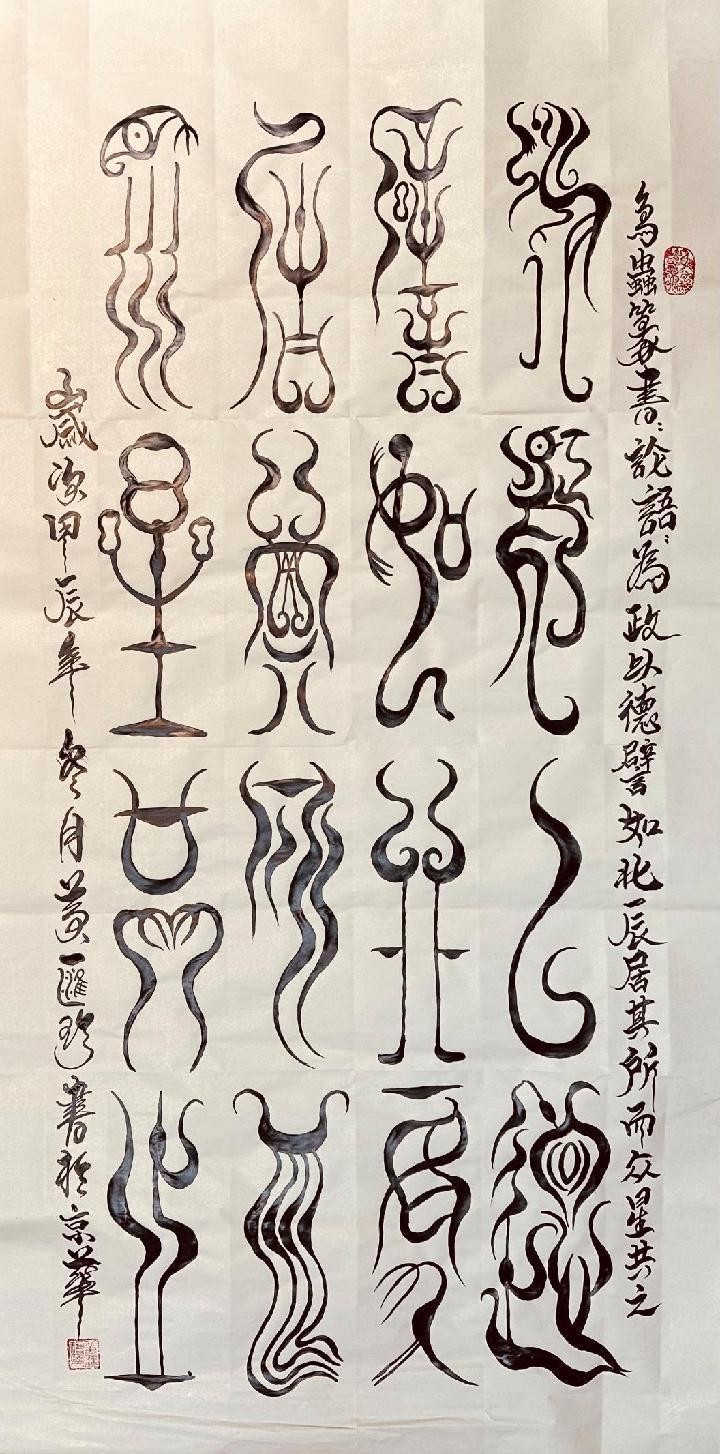 鳥蟲篆書:論語:為政以德譬如北辰居其所而众星共之
為政以德
譬如北辰
居其所而
众星共之
歲次甲辰年冬月黄匯珍書於京華